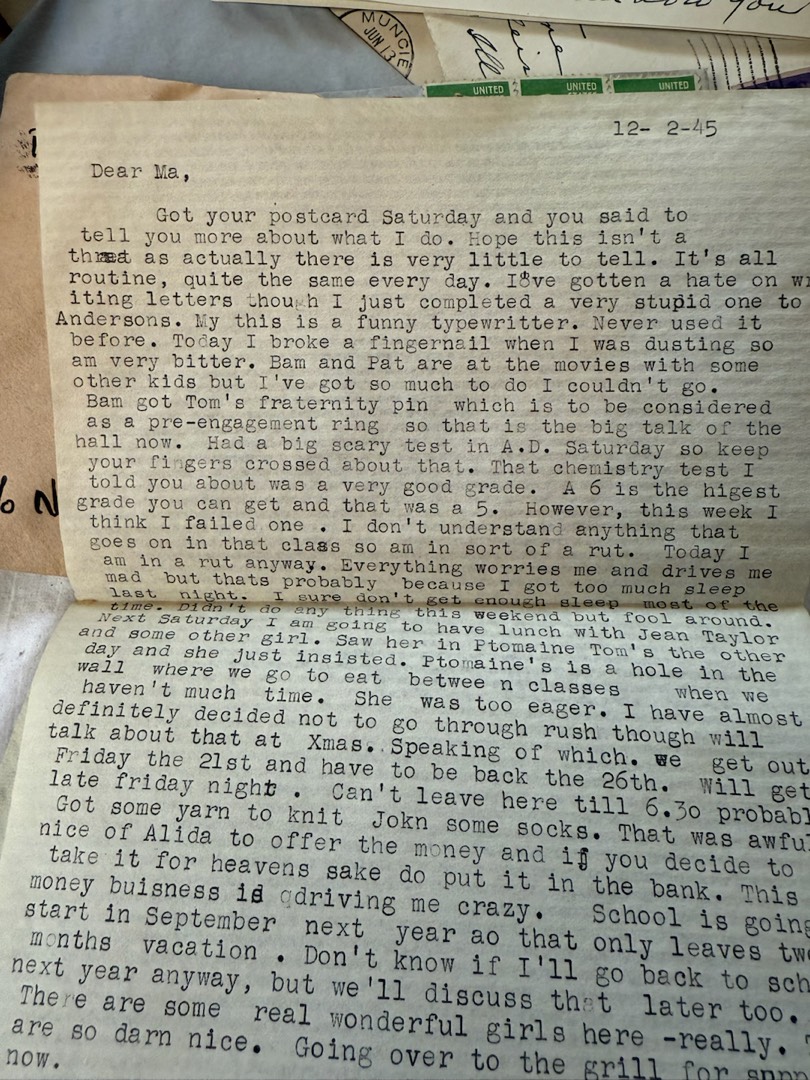 how you
MUNCIE
JUN 13
UNITED
UNITED
UNITED
12- 2-45
Dear Ma,
Got your postcard Saturday and you said to
tell you more about what I do. Hope this isn't a
as actually there is very little to tell. It's all
routine, quite the same every day. I8ve gotten a hate on wr
iting letters though I just completed a very stupid one to
Andersons. My this is a funny typewritter. Never used it
before. Today I broke a fingernail when I was dusting so
am very bitter. Bam and Pat are at the movies with some
other kids but I've got so much to do I couldn't go.
Bam got Tom's fraternity pin which is to be considered
as a pre-engagement ring so that is the big talk of the
hall now. Had a big scary test in A.D. Saturday so keep
your fingers crossed about that. That chemistry test I
told you about was a very good grade. A 6 is the higest
grade you can get and that was a 5. However, this week I
think I failed one . I don't understand anything that
goes on in that class so am in sort of a rut. Today I
am in a rut anyway. Everything worries me and drives me
mad but thats probably because I got too much sleep
last night. I sure don't get enough sleep most of the
time. Didn't do any thing this weekend but fool around.
Next Saturday I am going to have lunch with Jean Taylor
and some other girl. Saw her in Ptomaine Tom's the other
day and she just insisted. Ptomaine's is a hole in the
wall where we go to eat betwee n classes when we
haven't much time. She was too eager. I have almost
definitely decided not to go through rush though will
talk about that at Xmas. Speaking of which. we get out
Friday the 21st and have to be back the 26th. Will get
late friday night . Can't leave here till 6.30 probabl
Got some yarn to knit Jokn some socks. That was awfu
nice of Alida to offer the money and if you decide to
take it for heavens sake do put it in the bank. This
money buisness is driving me crazy. School is going
start in September next year ao that only leaves tw
months vacation . Don't know if I'll go back to sch
next year anyway, but we'll discuss that later too.
There are some real wonderful girls here -really. T
are so darn nice. Going over to the grill for
now.